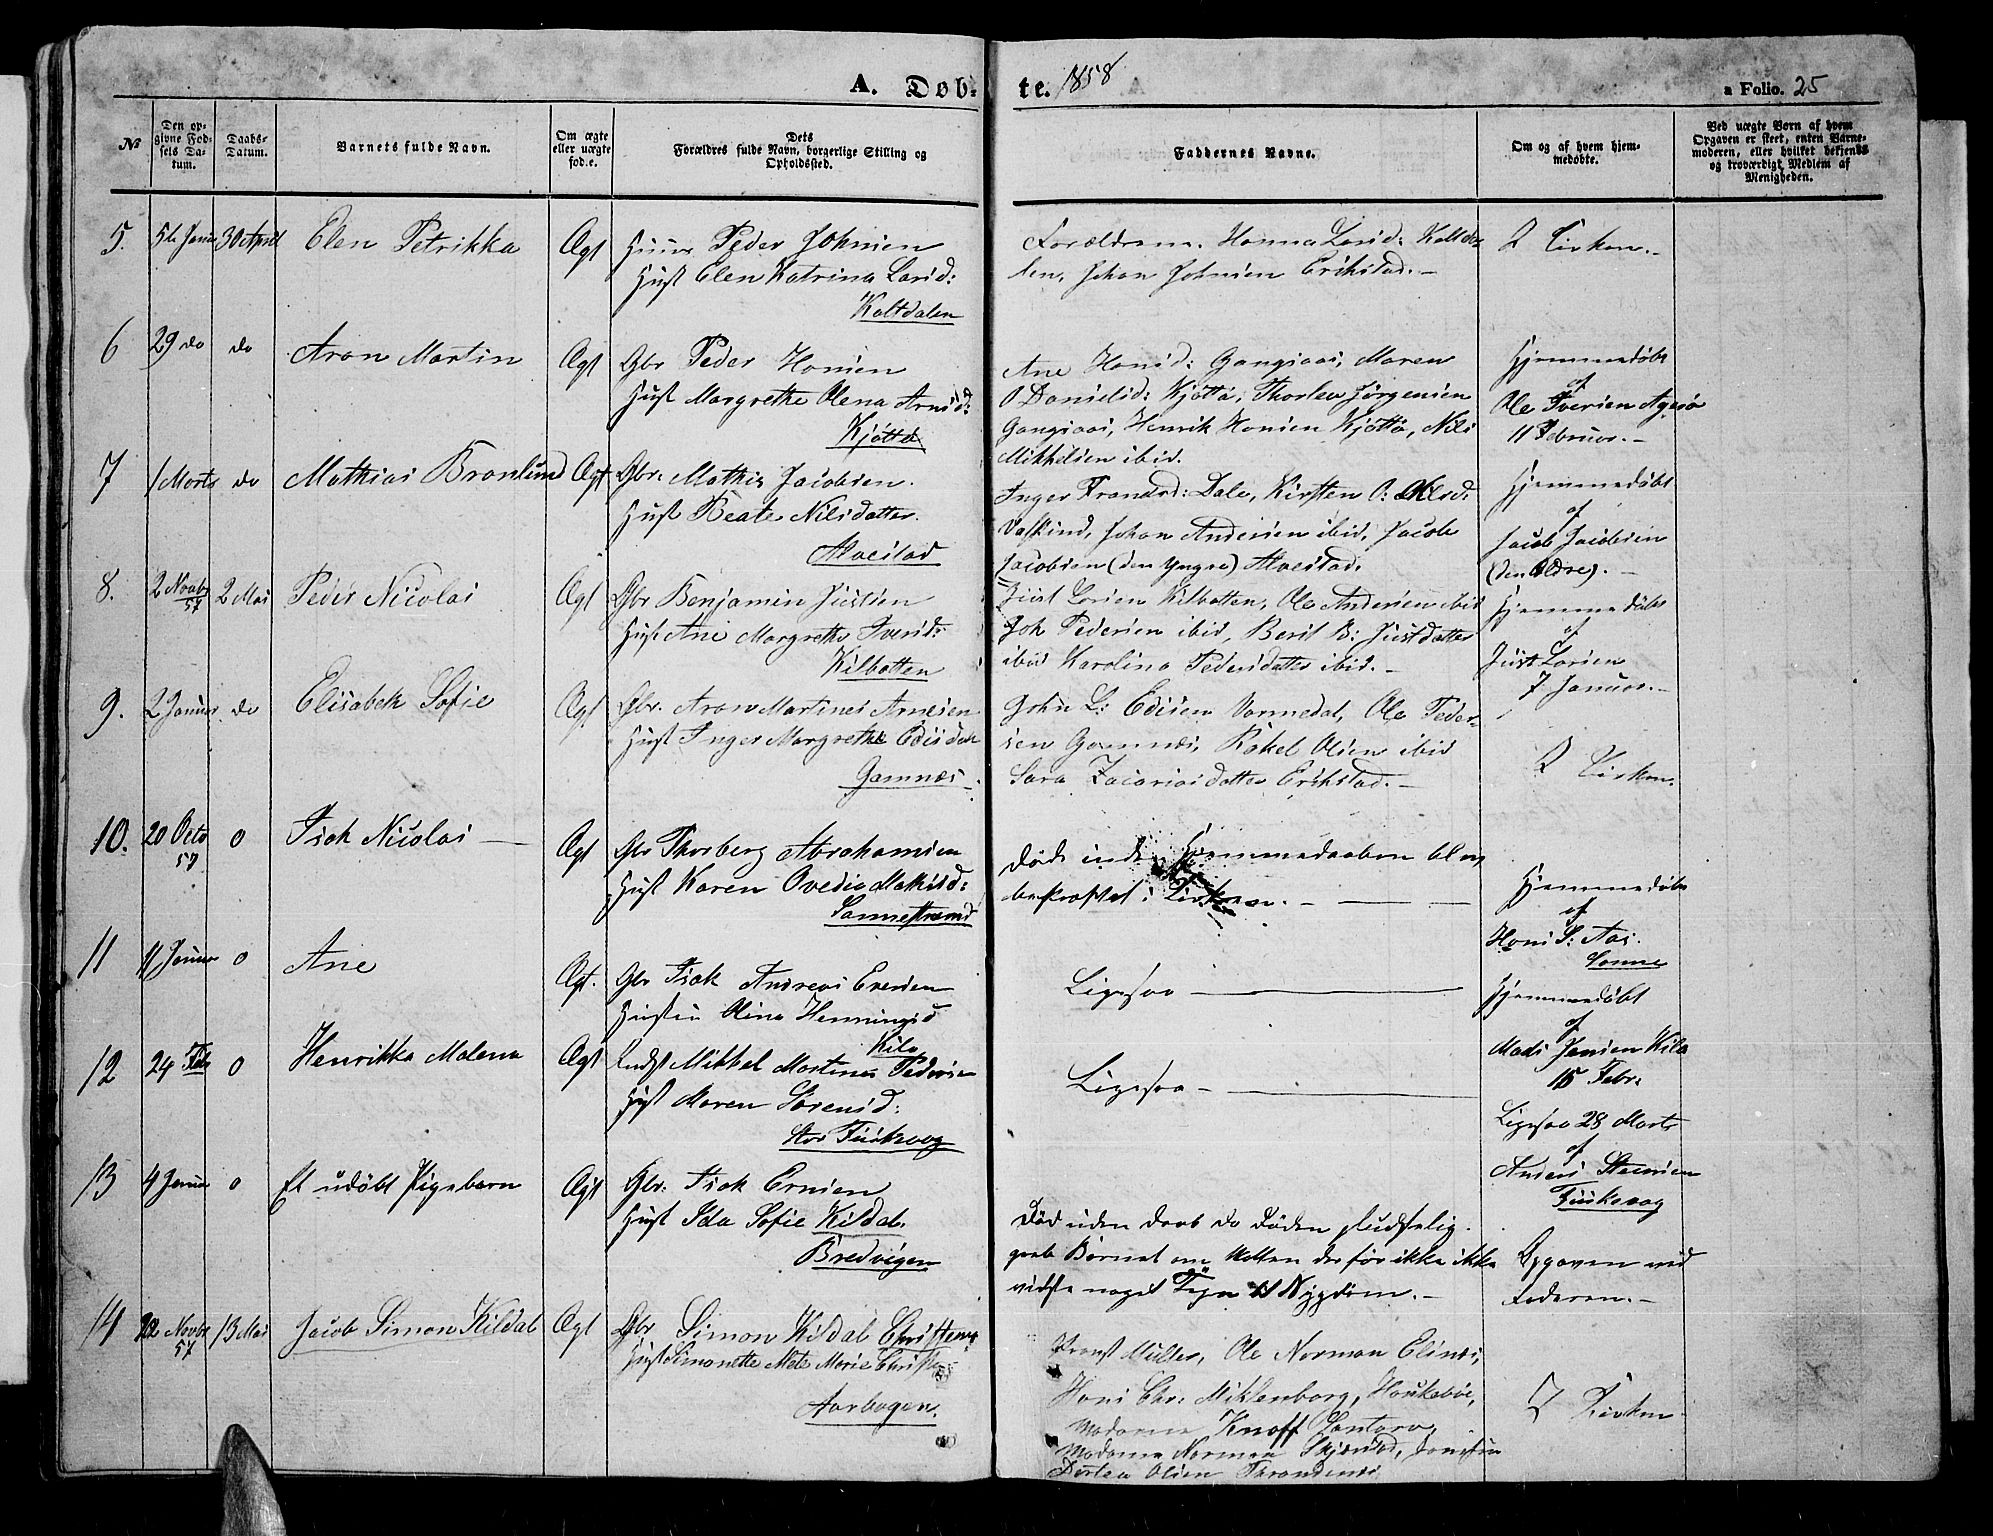 A. Døb-
te. 1858
a Folio. 25
№
Den op-
givne Fød-
sels Da-
tum.
Daabs-
Datum.
Barnets fulde Navn.
Om ægte
eller uægte
fød.e.
Dets
Forældres fulde Navn, borgerlige Stilling og
Opholdssted.
Faddernes Navne.
Om og af hvem hjem-
medøbte.
Ved uægte Børn af hvem
Opgaven er skeet, enten Barne-
moderen, eller hvilket bekjendt
og troværdigt Medlem af
Menigheden.
5. 5te Januar 30 April Elen Petrikka Ægt
Peder Johnsen
Hust Elen Katrina Larsd:
Kaltdalen
Forældrene. Hanna Larsd: Kaltda-
len, Johan Johnsen Erikstad. -
I Kirken. -
6 29 do do Aron Martin Ægt
Gbr Peder Hansen
Hust Margrethe Olena Arnsd:
Kjøtta
Ane Hansd: Gangsaas, Maren
O Danielsd: Kjøtta, Thorlev Jørgensen
Gangsaas, Henrik Hansen Kjøtta, Nils
Mikkelsen ibid.
Hjemmedøbt
af
Ole Iversen
11 Februar. -
7 1 Marts do Mathias Bronlund Ægt
Gbr: Mathis Jacobsen.
Hust Beate Nilsdatter.
Alvestad
Inger Dale, Kirsten O: Olsd:
Johan Andersen ibid, Jacob
Jacobsen (den Yngre) Alvestad.
Hjemmedøbt
af
Jacob Jacobsen
(den Ældre). -
8. 2 Novbr 57 2 Mai Peder Nicolai Ægt
Gbr Benjamin Justsen
Hust Ane Margrethe Iversd:
Kilbotten
Just Larsen Kilbotten, Ole Andersen ibid
Joh Pedersen ibid, Berit B: Justdatter
ibid Karolina Pedersdatter ibid. -
Hjemmedøbt
af
Just Larsen
7 Januar. -
9. 2 Januar do Elisabek Sofie Ægt
Gbr. Aron Martines Arnesen
Hust Inger Margrethe Edisdatr
Gamnæs.
John L: Edisen Vormedal, Ole Peder-
sen Gamnæs, Rakel Olsen ibid
Sara Zacariasdatter Erikstad. -
I Kirken.
10. 20 Octo 57 0 Isak Nicolai Ægt
Gbr Thorberg Abrahamsen
Hust Karen Ovedia Mathisd:
Sannestrand
Døde inden Hjemmedaaben blev
bekræftet i Kirken. -
Hjemmedøbt
af
Hans S: Aas.
Sanne
11 11 Januar 0 Ane Ægt.
Gbr Isak Andreas Evensen
Hustru Olina Henningsd
Kila
Ligesaa
Hjemmedøbt
af
Mads Jensen Kila
15 Febr:
12 24 Feb 0 Henrikka Malena Ægt
Indst Mikkel Martines Pedersen
Hust Maren Sørensd:
Stor Finkevaag
Ligesaa -
Ligesaa 28 Marts
af
Anders
Finkevaag
13 4 Januar 0 Et udøbt Pigebarn Ægt
Gbr: Isak Ernsen
Hust Ida Sofie Kildal.
Bredvigen
Død uden daab da Døden pludselig
greb Barnet om Natten derfor ikke ikke
vidste noget Tegn til Sygdom. -
Opgaven ved
Faderen. -
14 22 Novbr 57 13 Mai Jacob Simon Kildal Ægt
Gbr Simon Kildal Christensen
Hust Simonette Mete Marie
Aarbogen.
Provst Müller, Ole Norman Elines,
Hans Chr: Miklenborg, Haukebøe,
Madame Knoff Santorv,
Madame Norman
Dorlea Olsen Throndenes
I Kirken